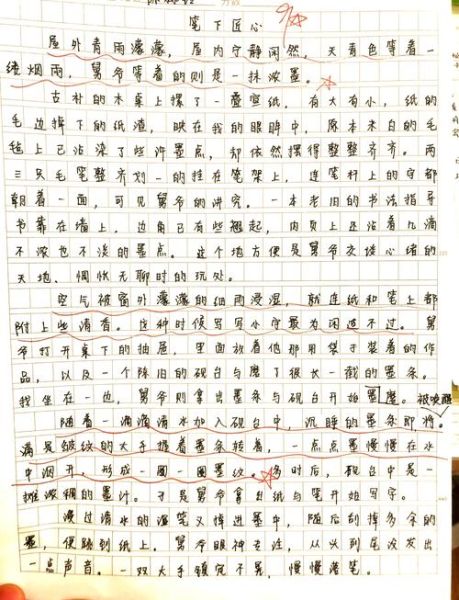 笔下匠心
屋外青雨濛濛，屋内宁静闲然，天青色等着一
缕烟雨，舅爷等着的则是一抹浓墨。
古朴的木桌上摆了一叠宣纸，有大有小，纸的
毛边掉下的纸渣，映在我的眼眸中，原本米白的毛
毡上已沾染了些许墨点，却依然摆得整整齐齐。两
三只毛笔整齐划一的挂在笔架上，连笔杆上的字都
朝着一面，可见舅爷的讲究。一本老旧的书法指导
书靠在墙上，边角已有些翘起，内页上还沾着几滴
不浓也不淡的墨点。这个地方便是舅爷交谈心绪的
天地、惆怅无聊时的玩处。
空气被窗外濛濛的细雨浸湿，就连纸和笔上都
附上些清香。这种时候写写小字最为闲适不过。舅
爷打开桌下的抽屉，里面放着他那用袋子装着的作
品，以及一个陈旧的砚台与磨了很长一截的墨条。
我坐在一边，舅爷则拿出墨条与砚台开始墨磨。被唤醒
随着一滴滴清水加入砚台中，沉睡的墨条即将。
满是皱纹的大手握着墨条转着，一点点墨慢慢在水
中洇开，形成一圈一圈墨纹。多时后，砚台中是一
摊浓稠的墨汁。于是舅爷拿出纸与笔开始写字。
浸过清水的湿笔又掉进墨中，随后刮掉多余的
墨，便踏到纸上。舅爷眼神专注，从头到尾没发出
一点声音。一双大手镇定不晃，慢慢落笔。